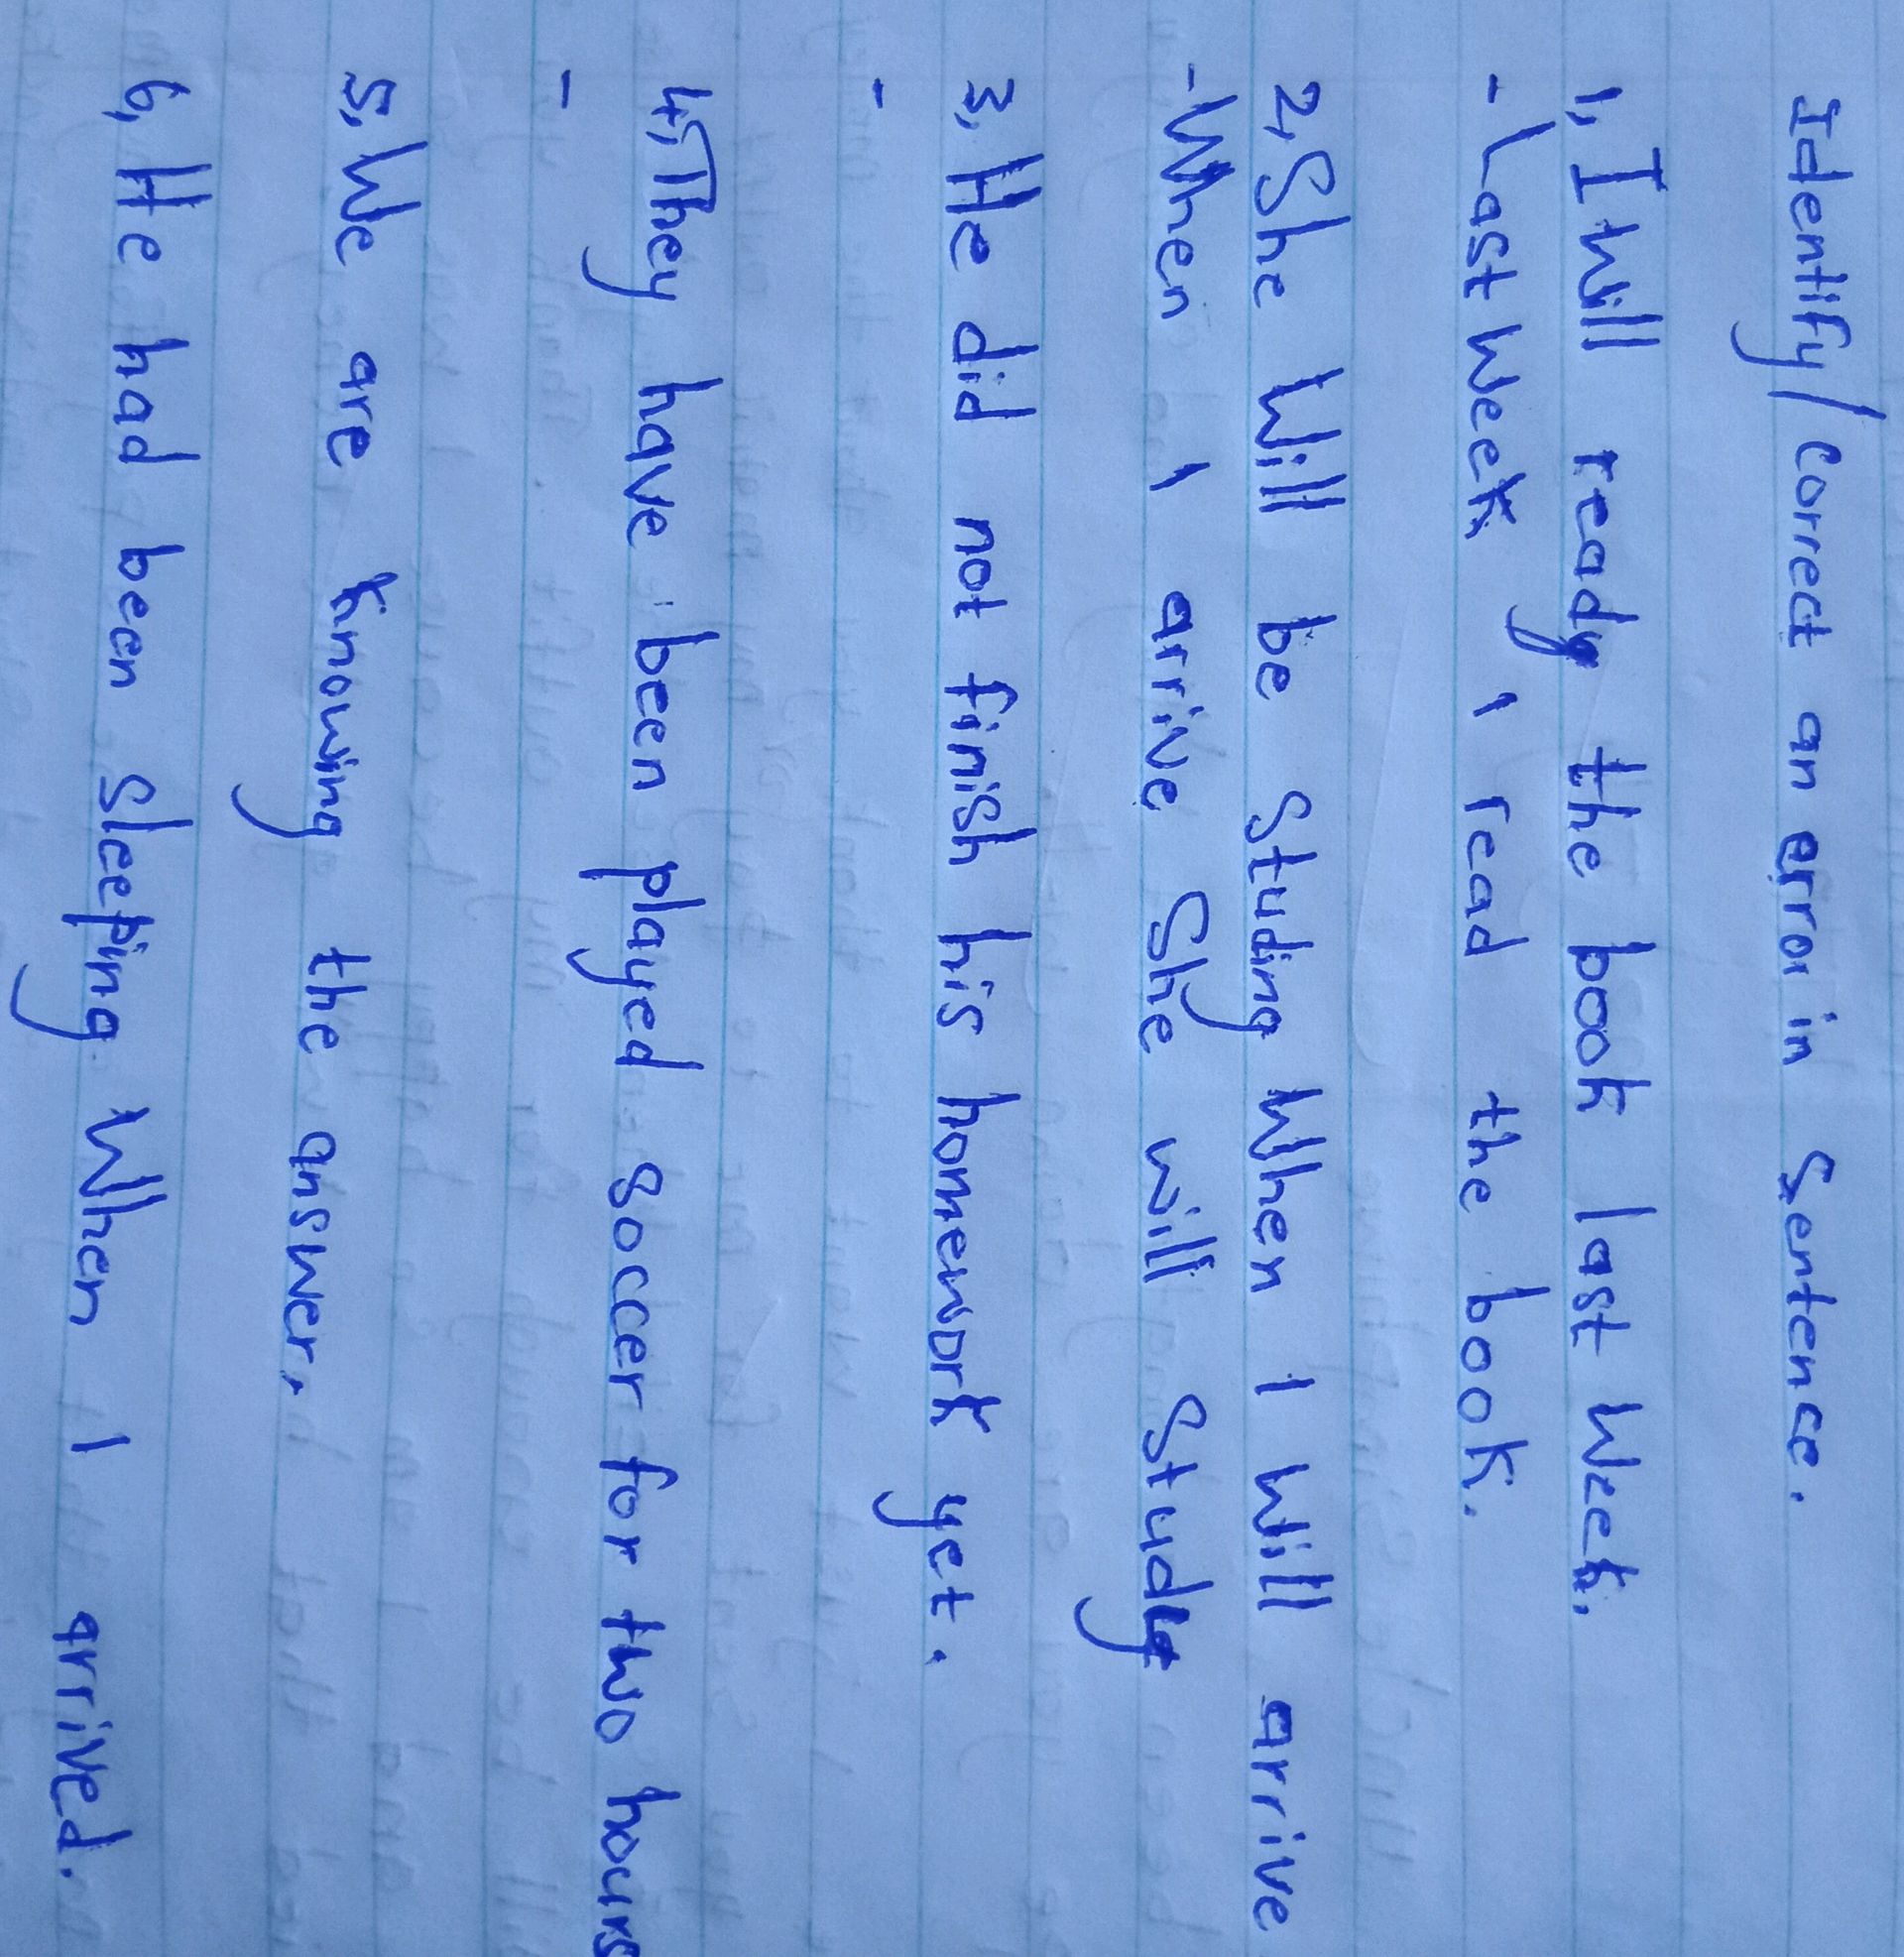 Identify/correct an error in Sentence.
1, I Will ready the book last Week.
- Last Week I read the book.
2, She Will be Studing When I Will arrive
- When I arrive She will Study
3, He did not finish his homework yet.
-
4, They have been played soccer for two hours
-
5, We are knowing the answer.
6, He had been Sleeping When I arrived.